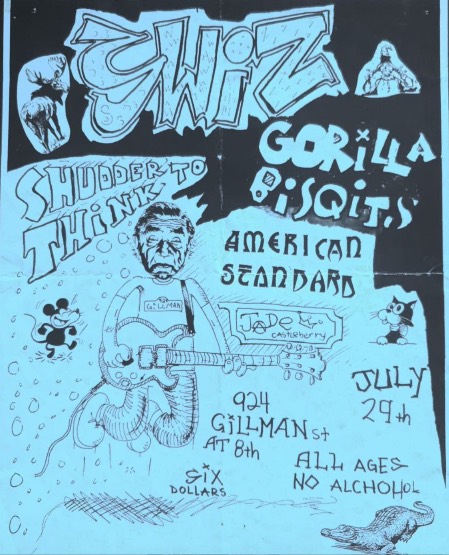 SWIZ
GORILLA
BISQITS
SHUDDER TO
THINK
AMERICAN
STANDARD
GILLMAN
JADE
CASTLEBERRY
924
GiLLMAN st
AT 8th
JULY
29th
Six
DOLLARS
ALL AGES
NO ALCHOHOL